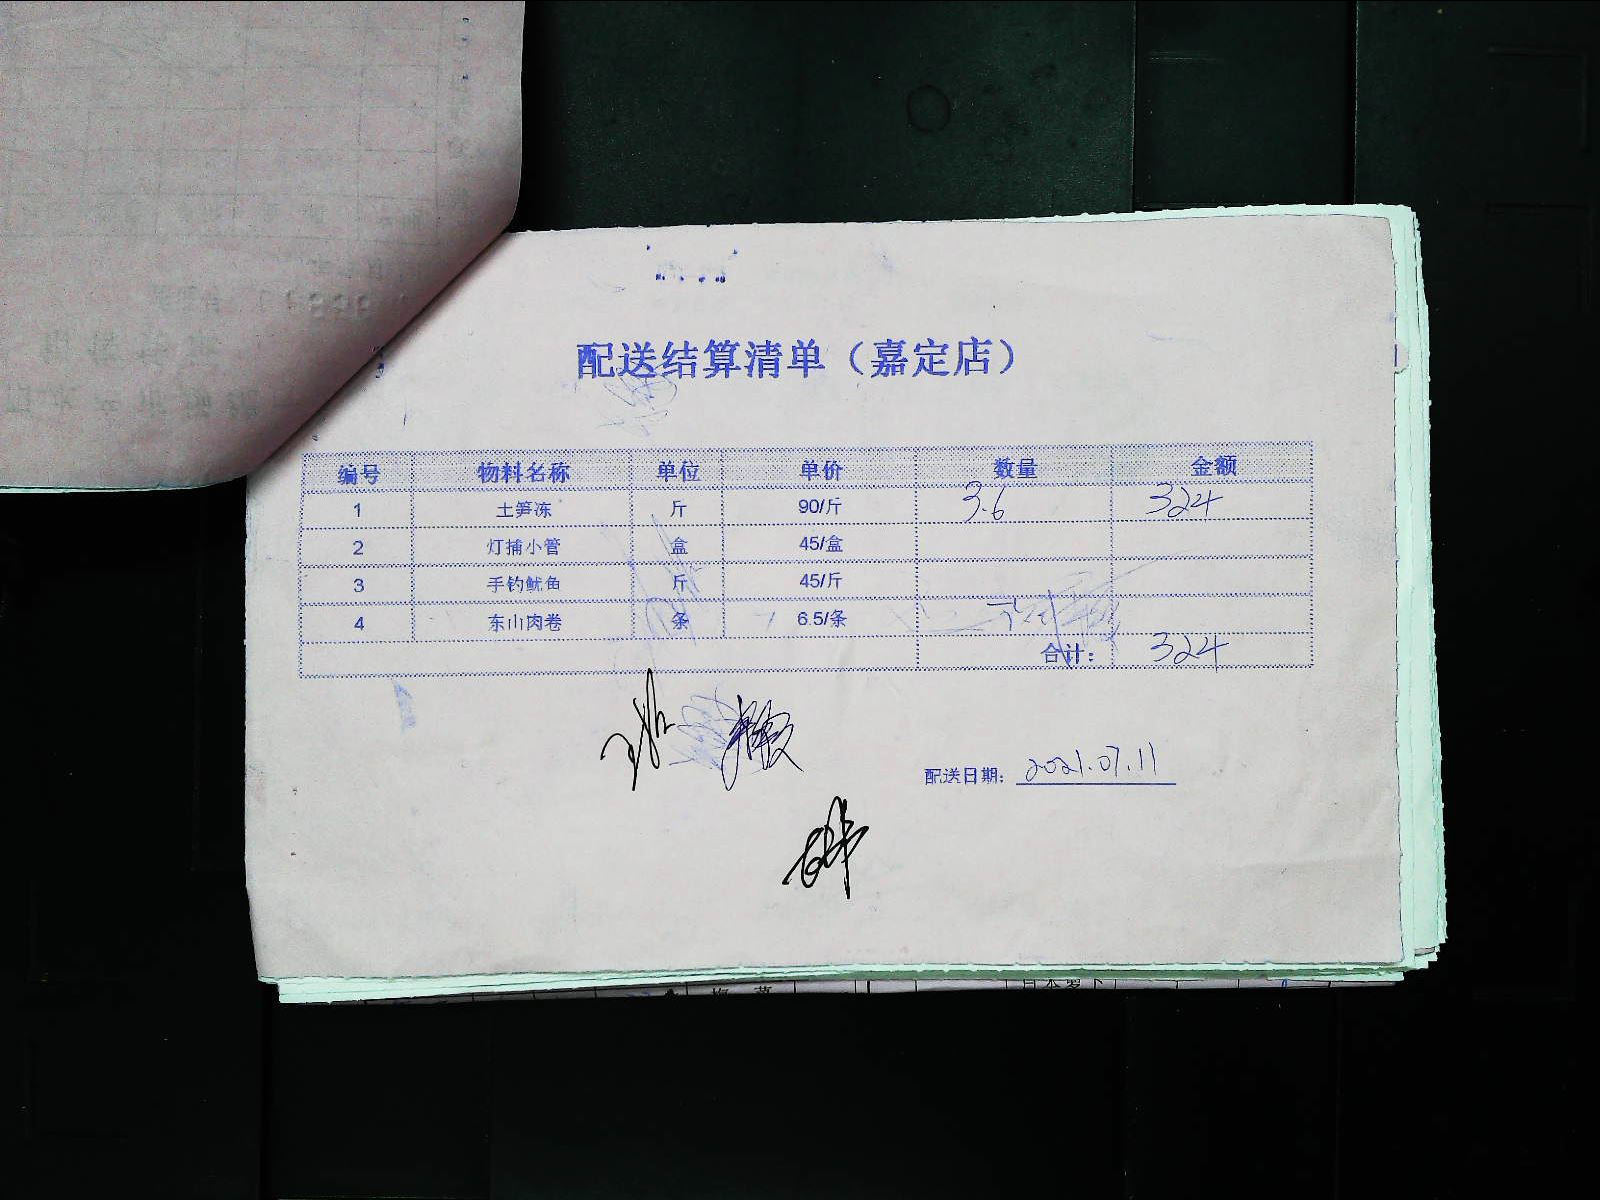 配送结算清单（嘉定店）
编号 物料名称 单位 单价 数量 金额
1 土笋冻 斤 90/斤 3.6 324
2 灯捕小管 盒 45/盒
3 手钓鱿鱼 斤 45/斤
4 东山肉卷 条 6.5/条
合计： 324
配送日期： 2021.07.11